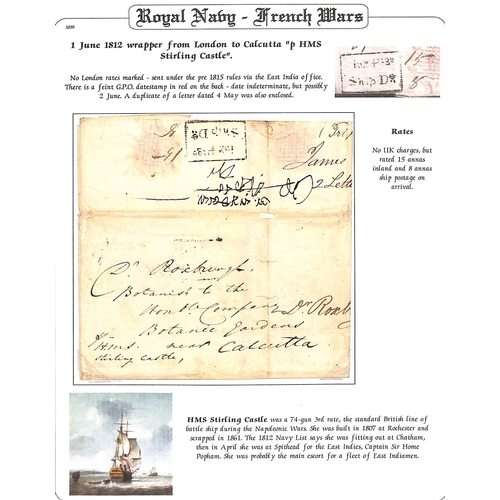 Royal Navy - French Wars
1 June 1812 wrapper from London to Calcutta "p HMS
Stirling Castle".
No London rates marked - sent under the pre 1815 rules via the East India office.
There is a feint G.P.O. datestamp in red on the back - date indeterminate, but possibly
2 June. A duplicate of a letter dated 4 May was also enclosed.
Ship Ds
Rates
No UK charges, but
rated 15 annas
inland and 8 annas
ship postage on
arrival.
Ship Ds
James
2 Lette
Dr Roxburgh,
Botanist to the
Honble Company
Dr Roxb
Botanic Gardens
near Calcutta
HMS
Stirling Castle,
HMS Stirling Castle was a 74-gun 3rd rate, the standard British line of
battle ship during the Napoleonic Wars. She was built in 1807 at Rochester and
scrapped in 1861. The 1812 Navy List says she was fitting out at Chatham,
then in April she was at Spithead for the East Indies, Captain Sir Home
Popham. She was probably the main escort for a fleet of East Indiamen.